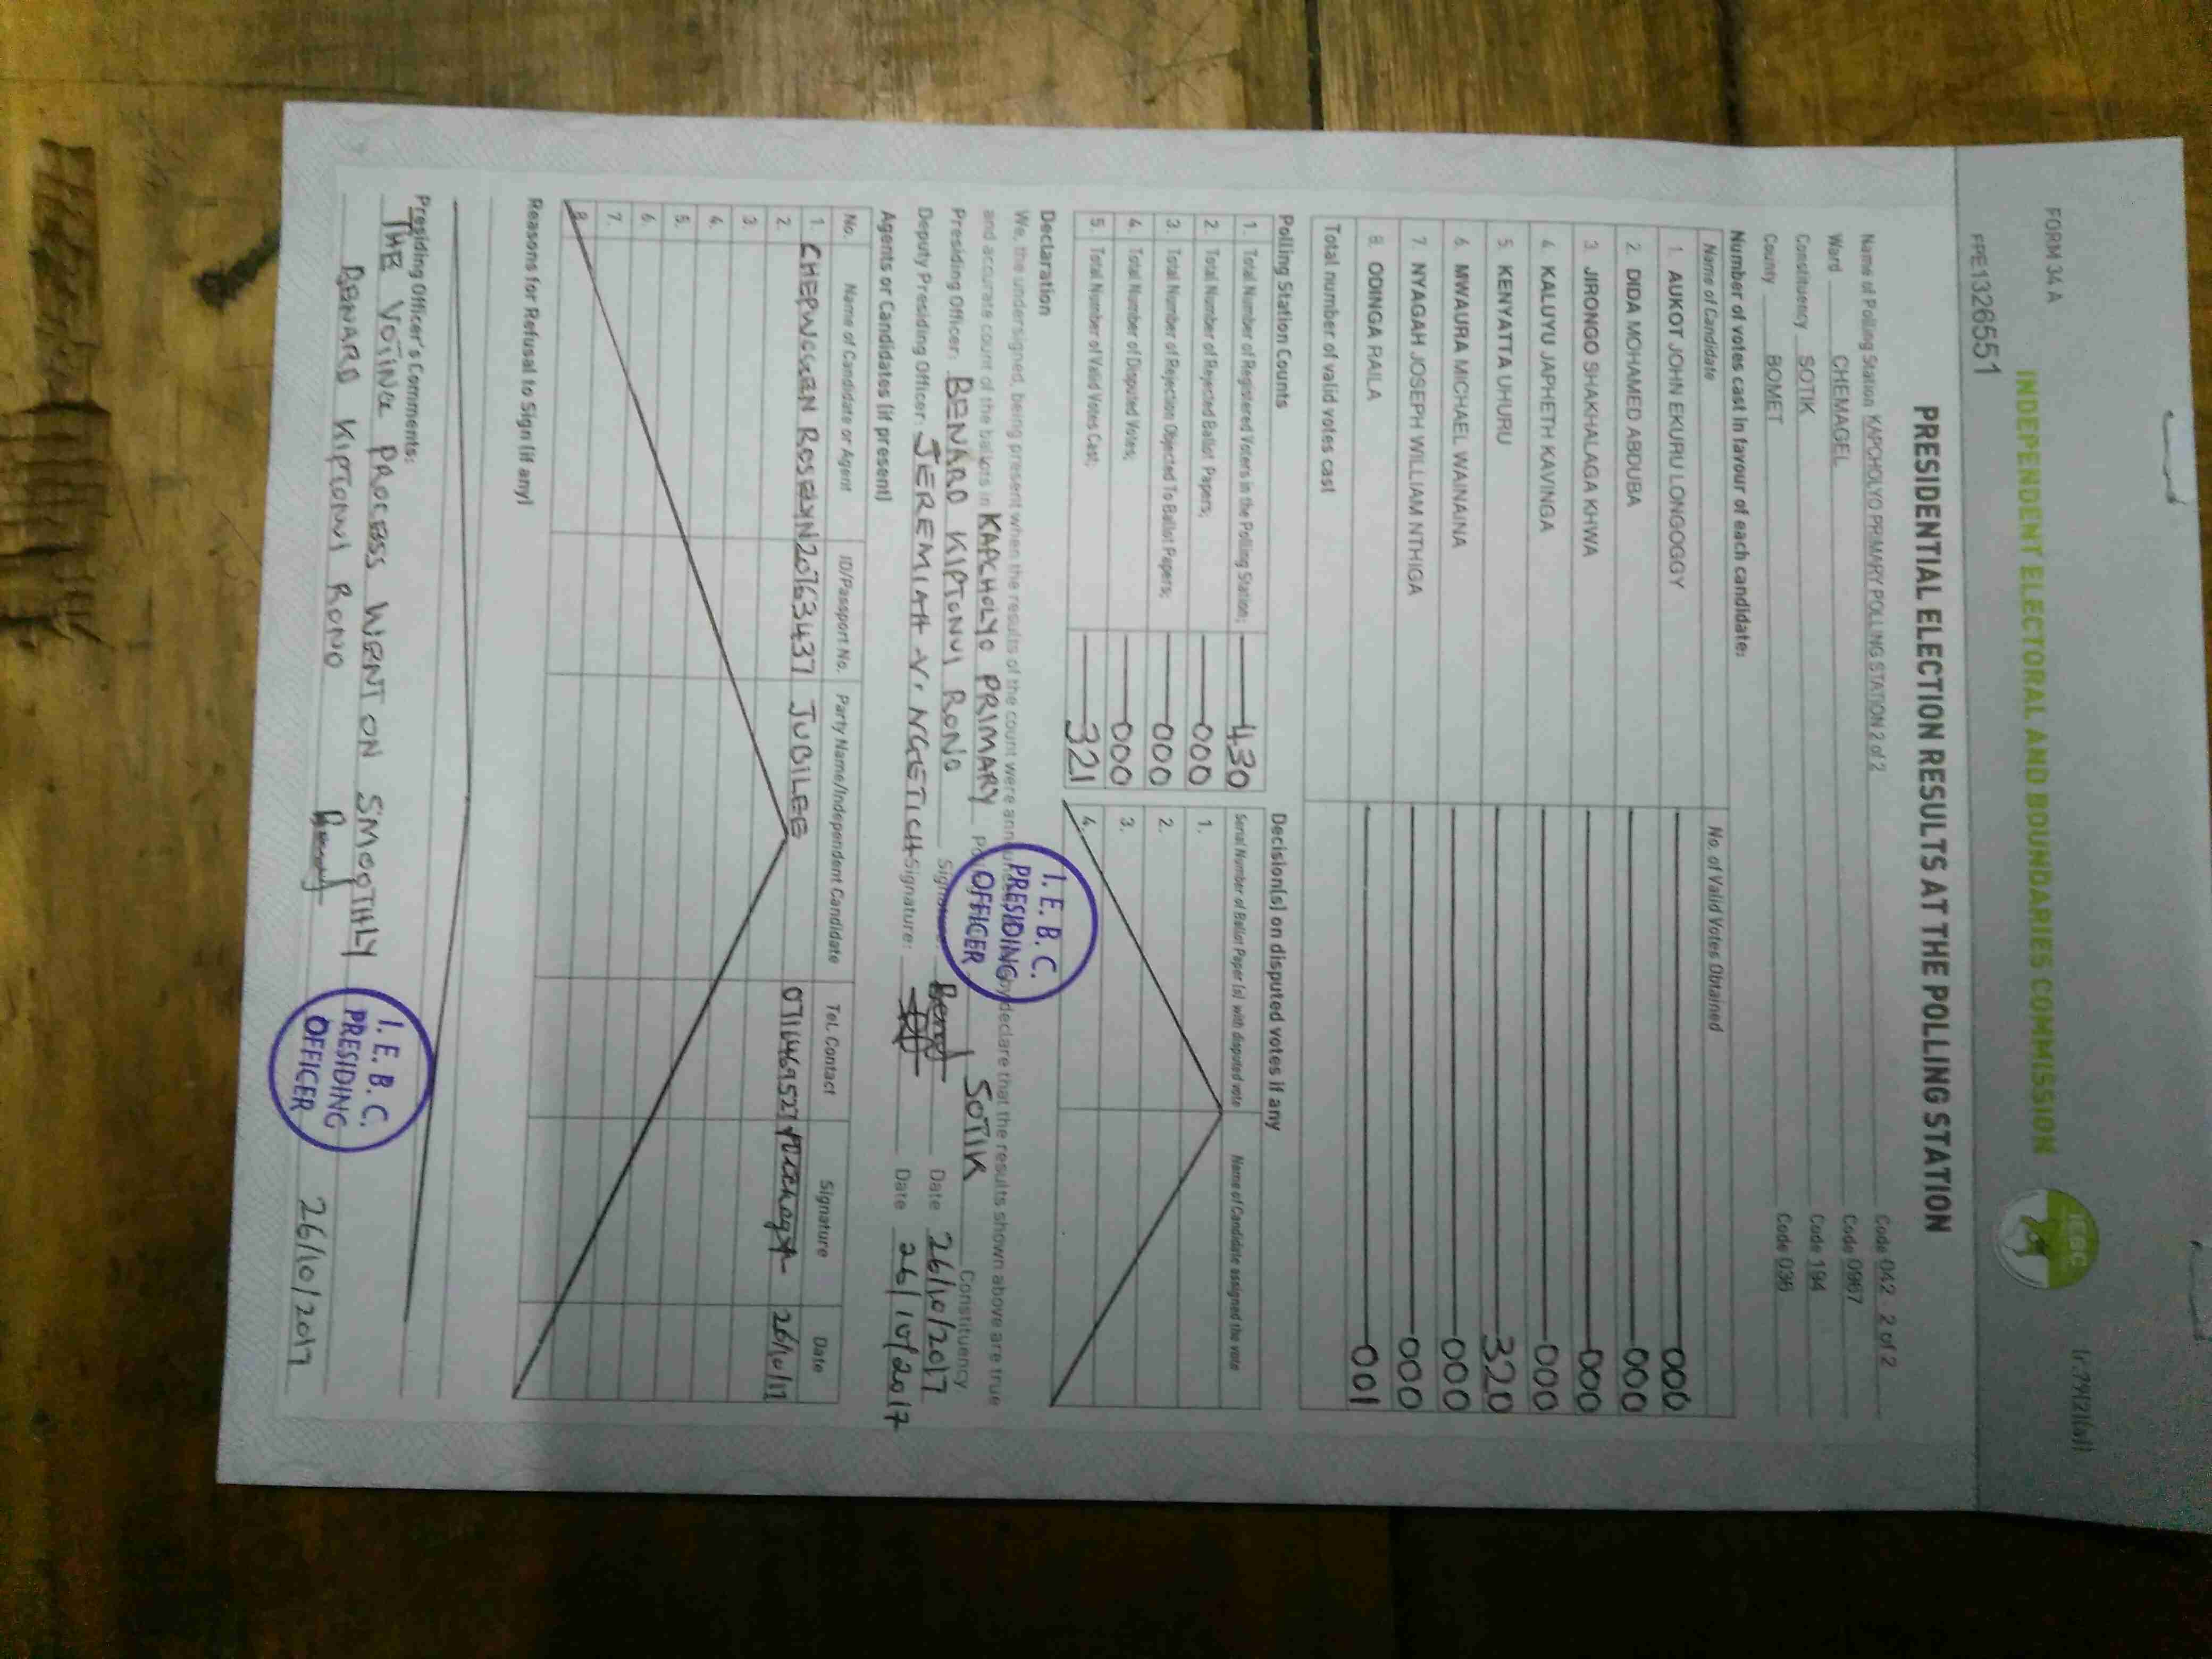 FORM 34 A
INDEPENDENT ELECTORAL AND BOUNDARIES COMMISSION
IEBC
(r.79(2)(a))
FPE132651
PRESIDENTIAL ELECTION RESULTS AT THE POLLING STATION
Name of Polling Station KAPCHOLYO PRIMARY POLLING STATION 2 of 2 Code 042 2 of 2
Ward CHEMAGEL Code 0967
Constituency SOTIK Code 194
County BOMET Code 036
Number of votes cast in favour of each candidate:
Name of Candidate No. of Valid Votes Obtained
1. AUKOT JOHN EKURU LONGOGGY 000
2. DIDA MOHAMED ABDUBA 000
3. JIRONGO SHAKHALAGA KHWA 000
4. KALUYU JAPHETH KAVINGA 000
5. KENYATTA UHURU 320
6. MWAURA MICHAEL WAINAINA 000
7. NYAGAH JOSEPH WILLIAM NTHIGA 000
8. ODINGA RAILA 001
Total number of valid votes cast
Polling Station Counts
1. Total Number of Registered Voters in the Polling Station; 430
2. Total Number of Rejected Ballot Papers; 000
3. Total Number of Rejection Objected To Ballot Papers; 000
4. Total Number of Disputed Votes; 000
5. Total Number of Valid Votes Cast; 321
Decision(s) on disputed votes if any
Serial Number of Ballot Paper (s) with disputed vote Name of Candidate assigned the vote
1.
2.
3.
4.
Declaration
We, the undersigned, being present when the results of the count were announced, hereby declare that the results shown above are true
and accurate count of the ballots in KAPCHOLYO PRIMARY SOTIK Constituency
Presiding Officer: BENARD KIPTONUI RONO Signature: Date 26/10/2017
Deputy Presiding Officer: JEREMIAH Y. NGETICH Signature: Date 26/10/2017
I. E. B. C.
PRESIDING
OFFICER
Agents or Candidates (if present)
No. Name of Candidate or Agent ID/Passport No. Party Name/Independent Candidate Tel. Contact Signature Date
1. ROSELYN 20763437 JUBILEE 0716469527 26/10/17
2.
3.
4.
5.
6.
7.
8.
Reasons for Refusal to Sign (if any)
Presiding Officer's Comments:
THE VOTING PROCESS WENT ON SMOOTHLY
BENARD KIPTONUI RONO 26/10/2017
I. E. B. C.
PRESIDING
OFFICER